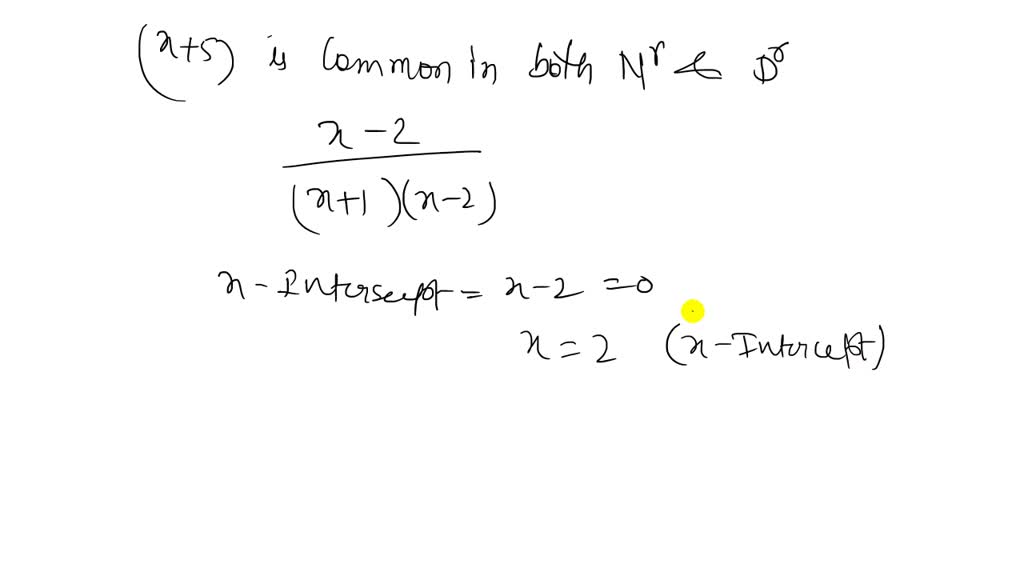 (x+5) is Common in both Nʳ & Dʳ
x-2
(x+1)(x-2)
x-Intersept = x-2 = 0
x = 2 (x-Intercept)